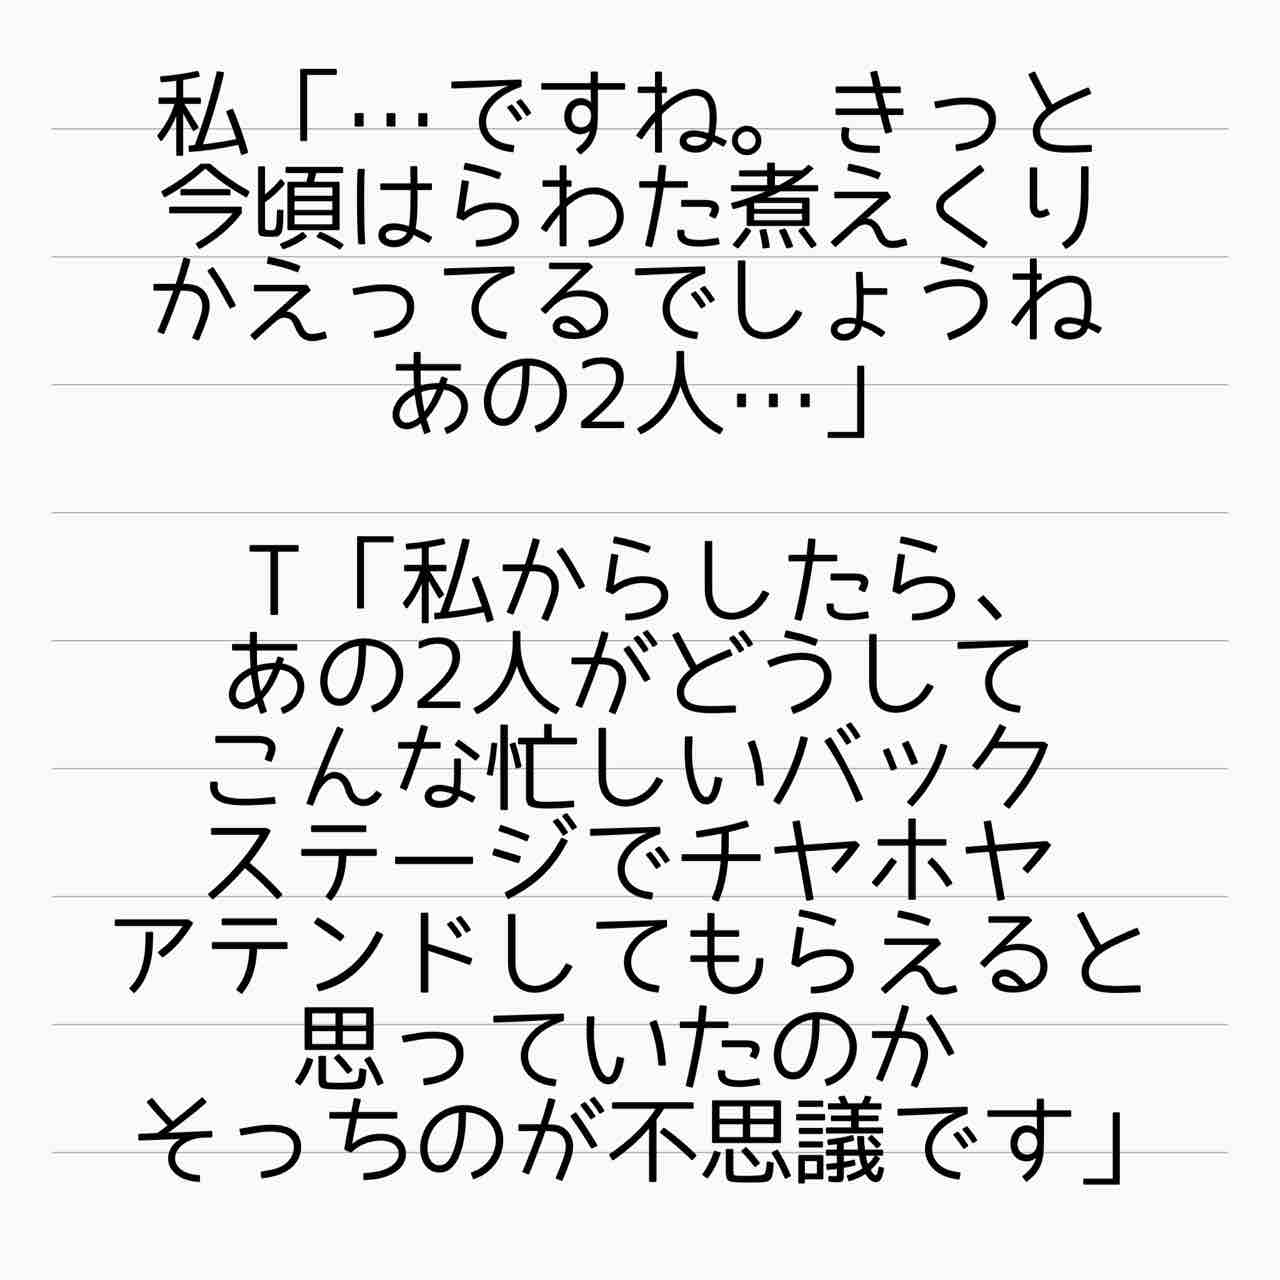 私「…ですね。きっと
今頃はらわた煮えくり
かえってるでしょうね
あの2人…」
T「私からしたら、
あの2人がどうして
こんな忙しいバック
ステージでチヤホヤ
アテンドしてもらえると
思っていたのか
そっちのが不思議です」